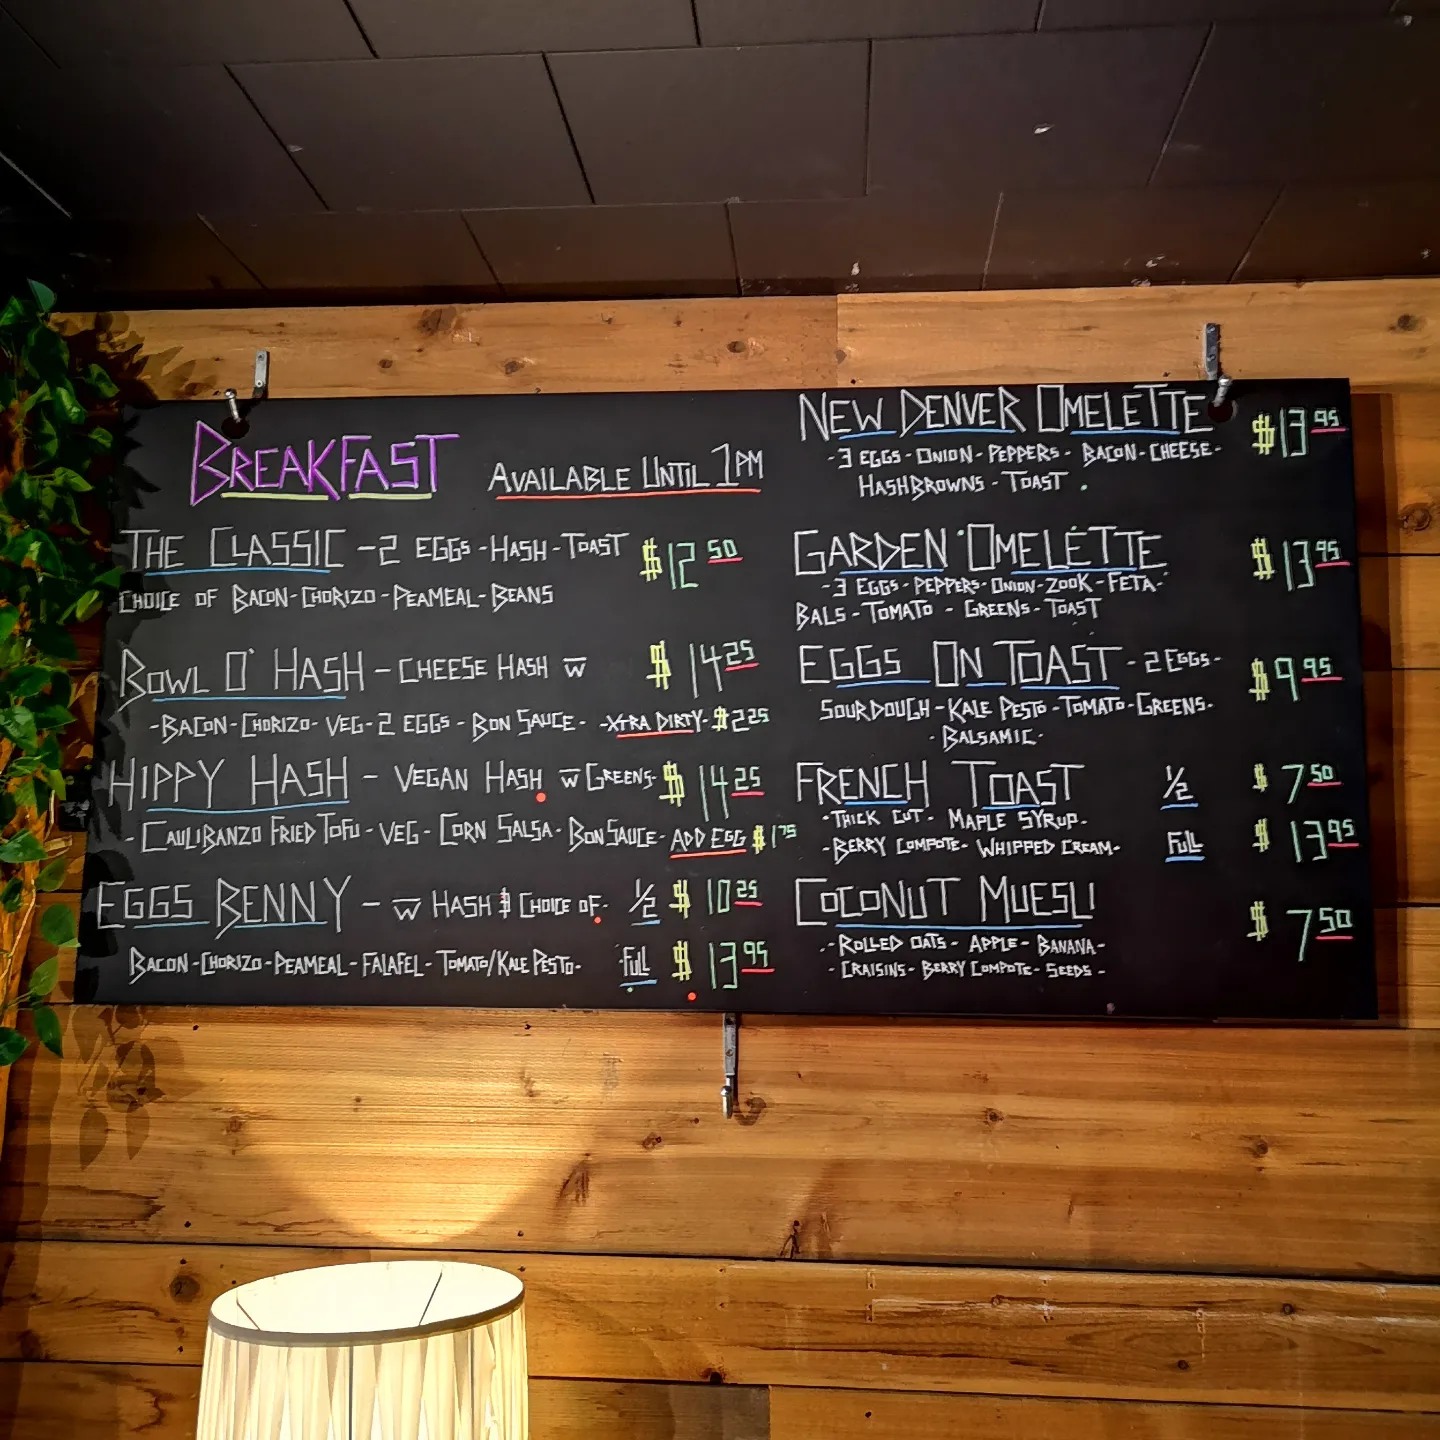 BREAKFAST AVAILABLE UNTIL 1PM
THE CLASSIC - 2 EGGS - HASH - TOAST $12 50
CHOICE OF BACON - CHORIZO - PEAMEAL - BEANS
BOWL O' HASH - CHEESE HASH W $14 25
- BACON - CHORIZO - VEG - 2 EGGS - BON SAUCE - - XTRA DIRTY - $2 25
HIPPY HASH - VEGAN HASH W GREENS - $14 25
- CAULIBANZO FRIED TOFU - VEG - CORN SALSA - BON SAUCE - ADD EGG $1 75
EGGS BENNY - W HASH & CHOICE OF - 1/2 $10 25
BACON - CHORIZO - PEAMEAL - FALAFEL - TOMATO/KALE PESTO - FULL $13 95
NEW DENVER OMELETTE $13 95
- 3 EGGS - ONION - PEPPERS - BACON - CHEESE -
HASHBROWNS - TOAST .
GARDEN OMELETTE $13 95
- 3 EGGS - PEPPERS - ONION - ZOOK - FETA -
BALS - TOMATO - GREENS - TOAST
EGGS ON TOAST - 2 EGGS - $9 95
SOURDOUGH - KALE PESTO - TOMATO - GREENS -
- BALSAMIC -
FRENCH TOAST 1/2 $7 50
- THICK CUT - MAPLE SYRUP -
- BERRY COMPOTE - WHIPPED CREAM - FULL $13 95
COCONUT MUESLI $7 50
- ROLLED OATS - APPLE - BANANA -
- CRAISINS - BERRY COMPOTE - SEEDS -